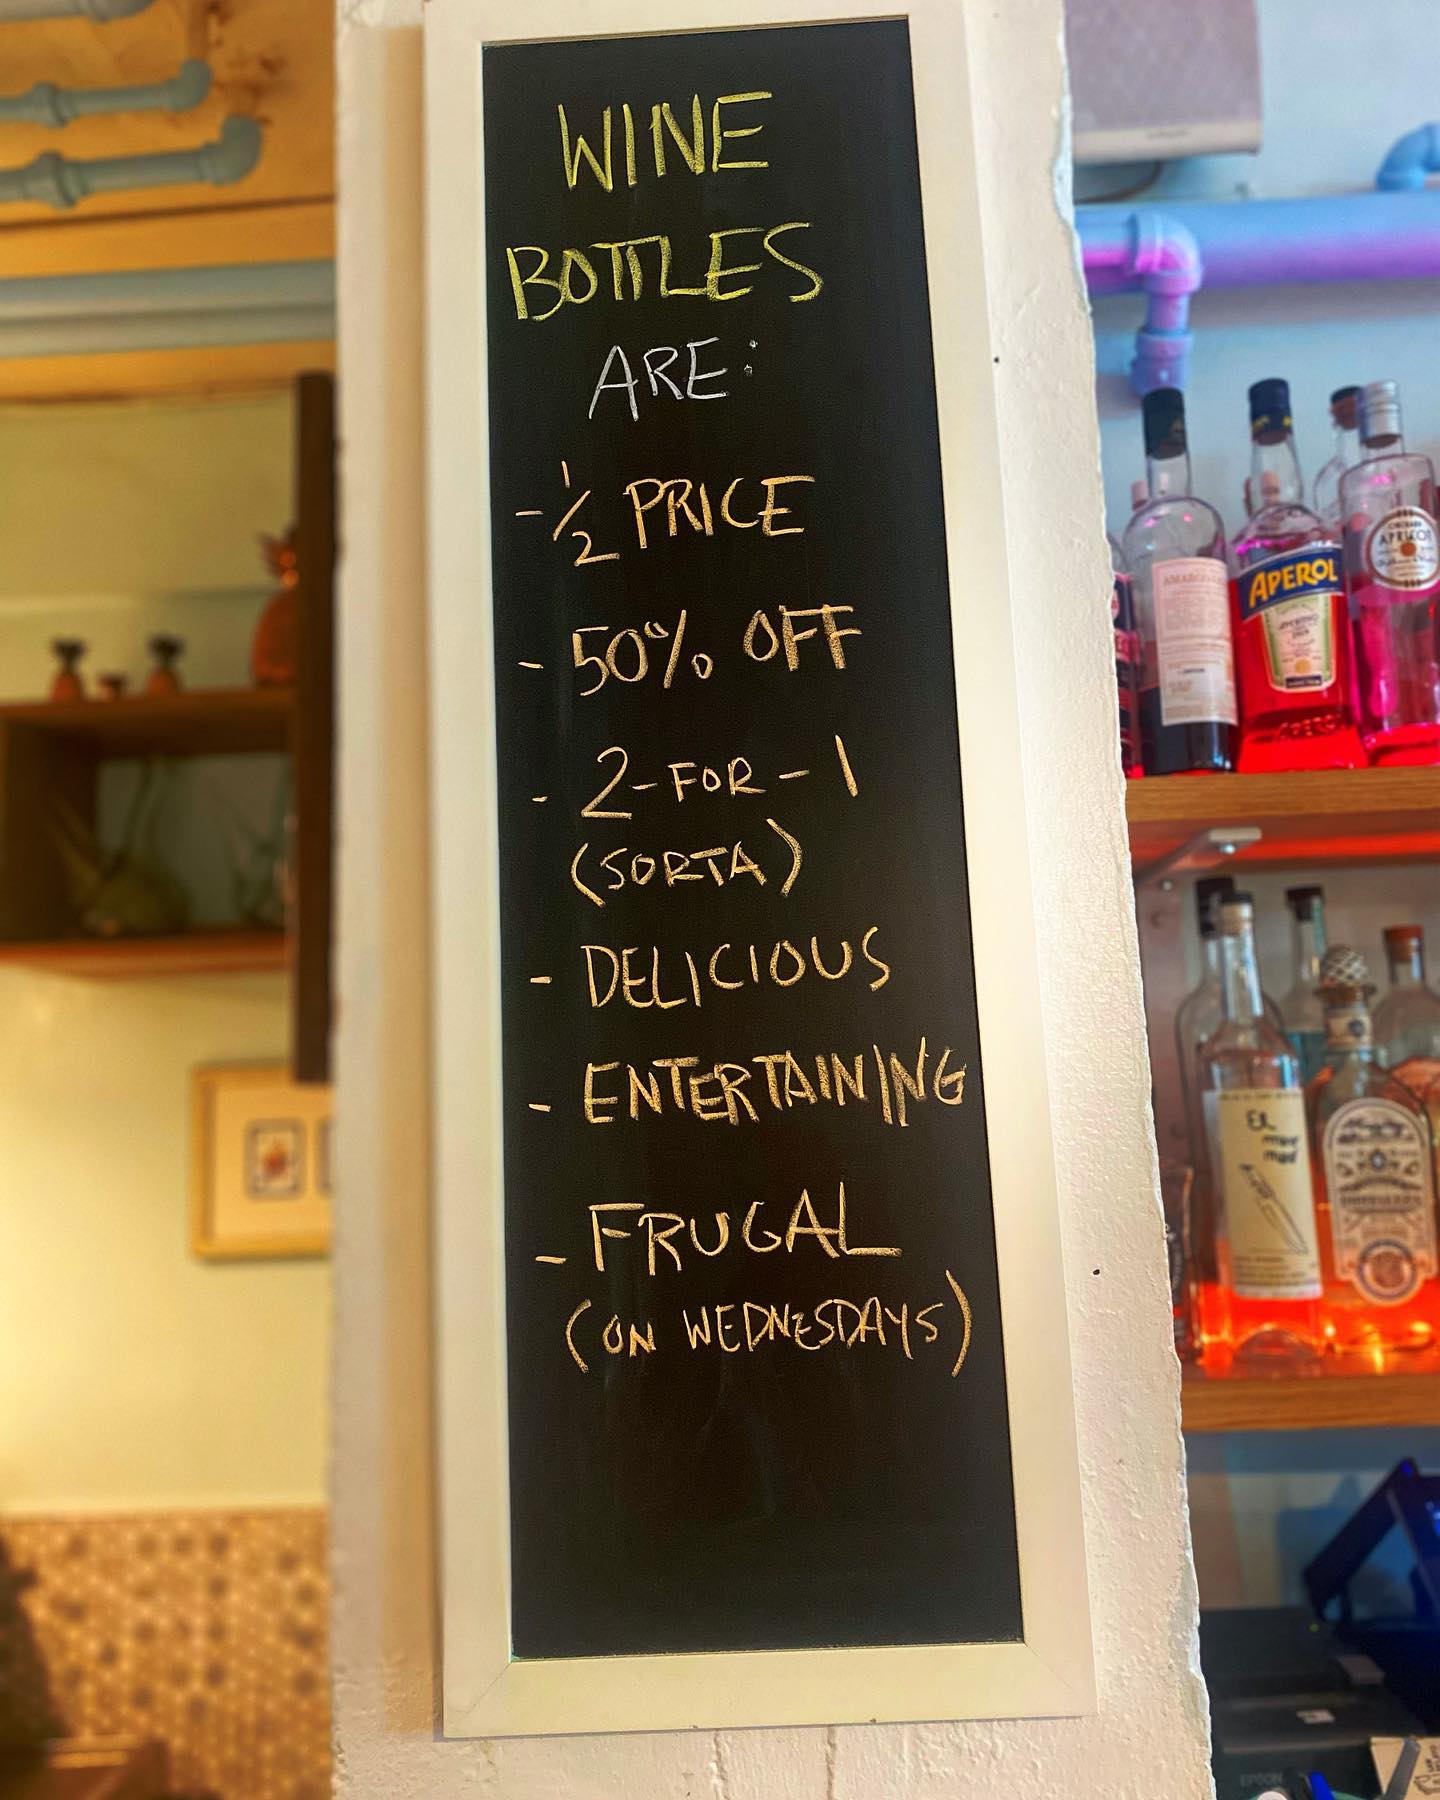 WINE
BOTTLES
ARE:
- 1/2 PRICE
- 50% OFF
- 2-FOR-1
(SORTA)
- DELICIOUS
- ENTERTAINING
- FRUGAL
(ON WEDNESDAYS)
APRICOT
APEROL
APEROL
EL
EPSON